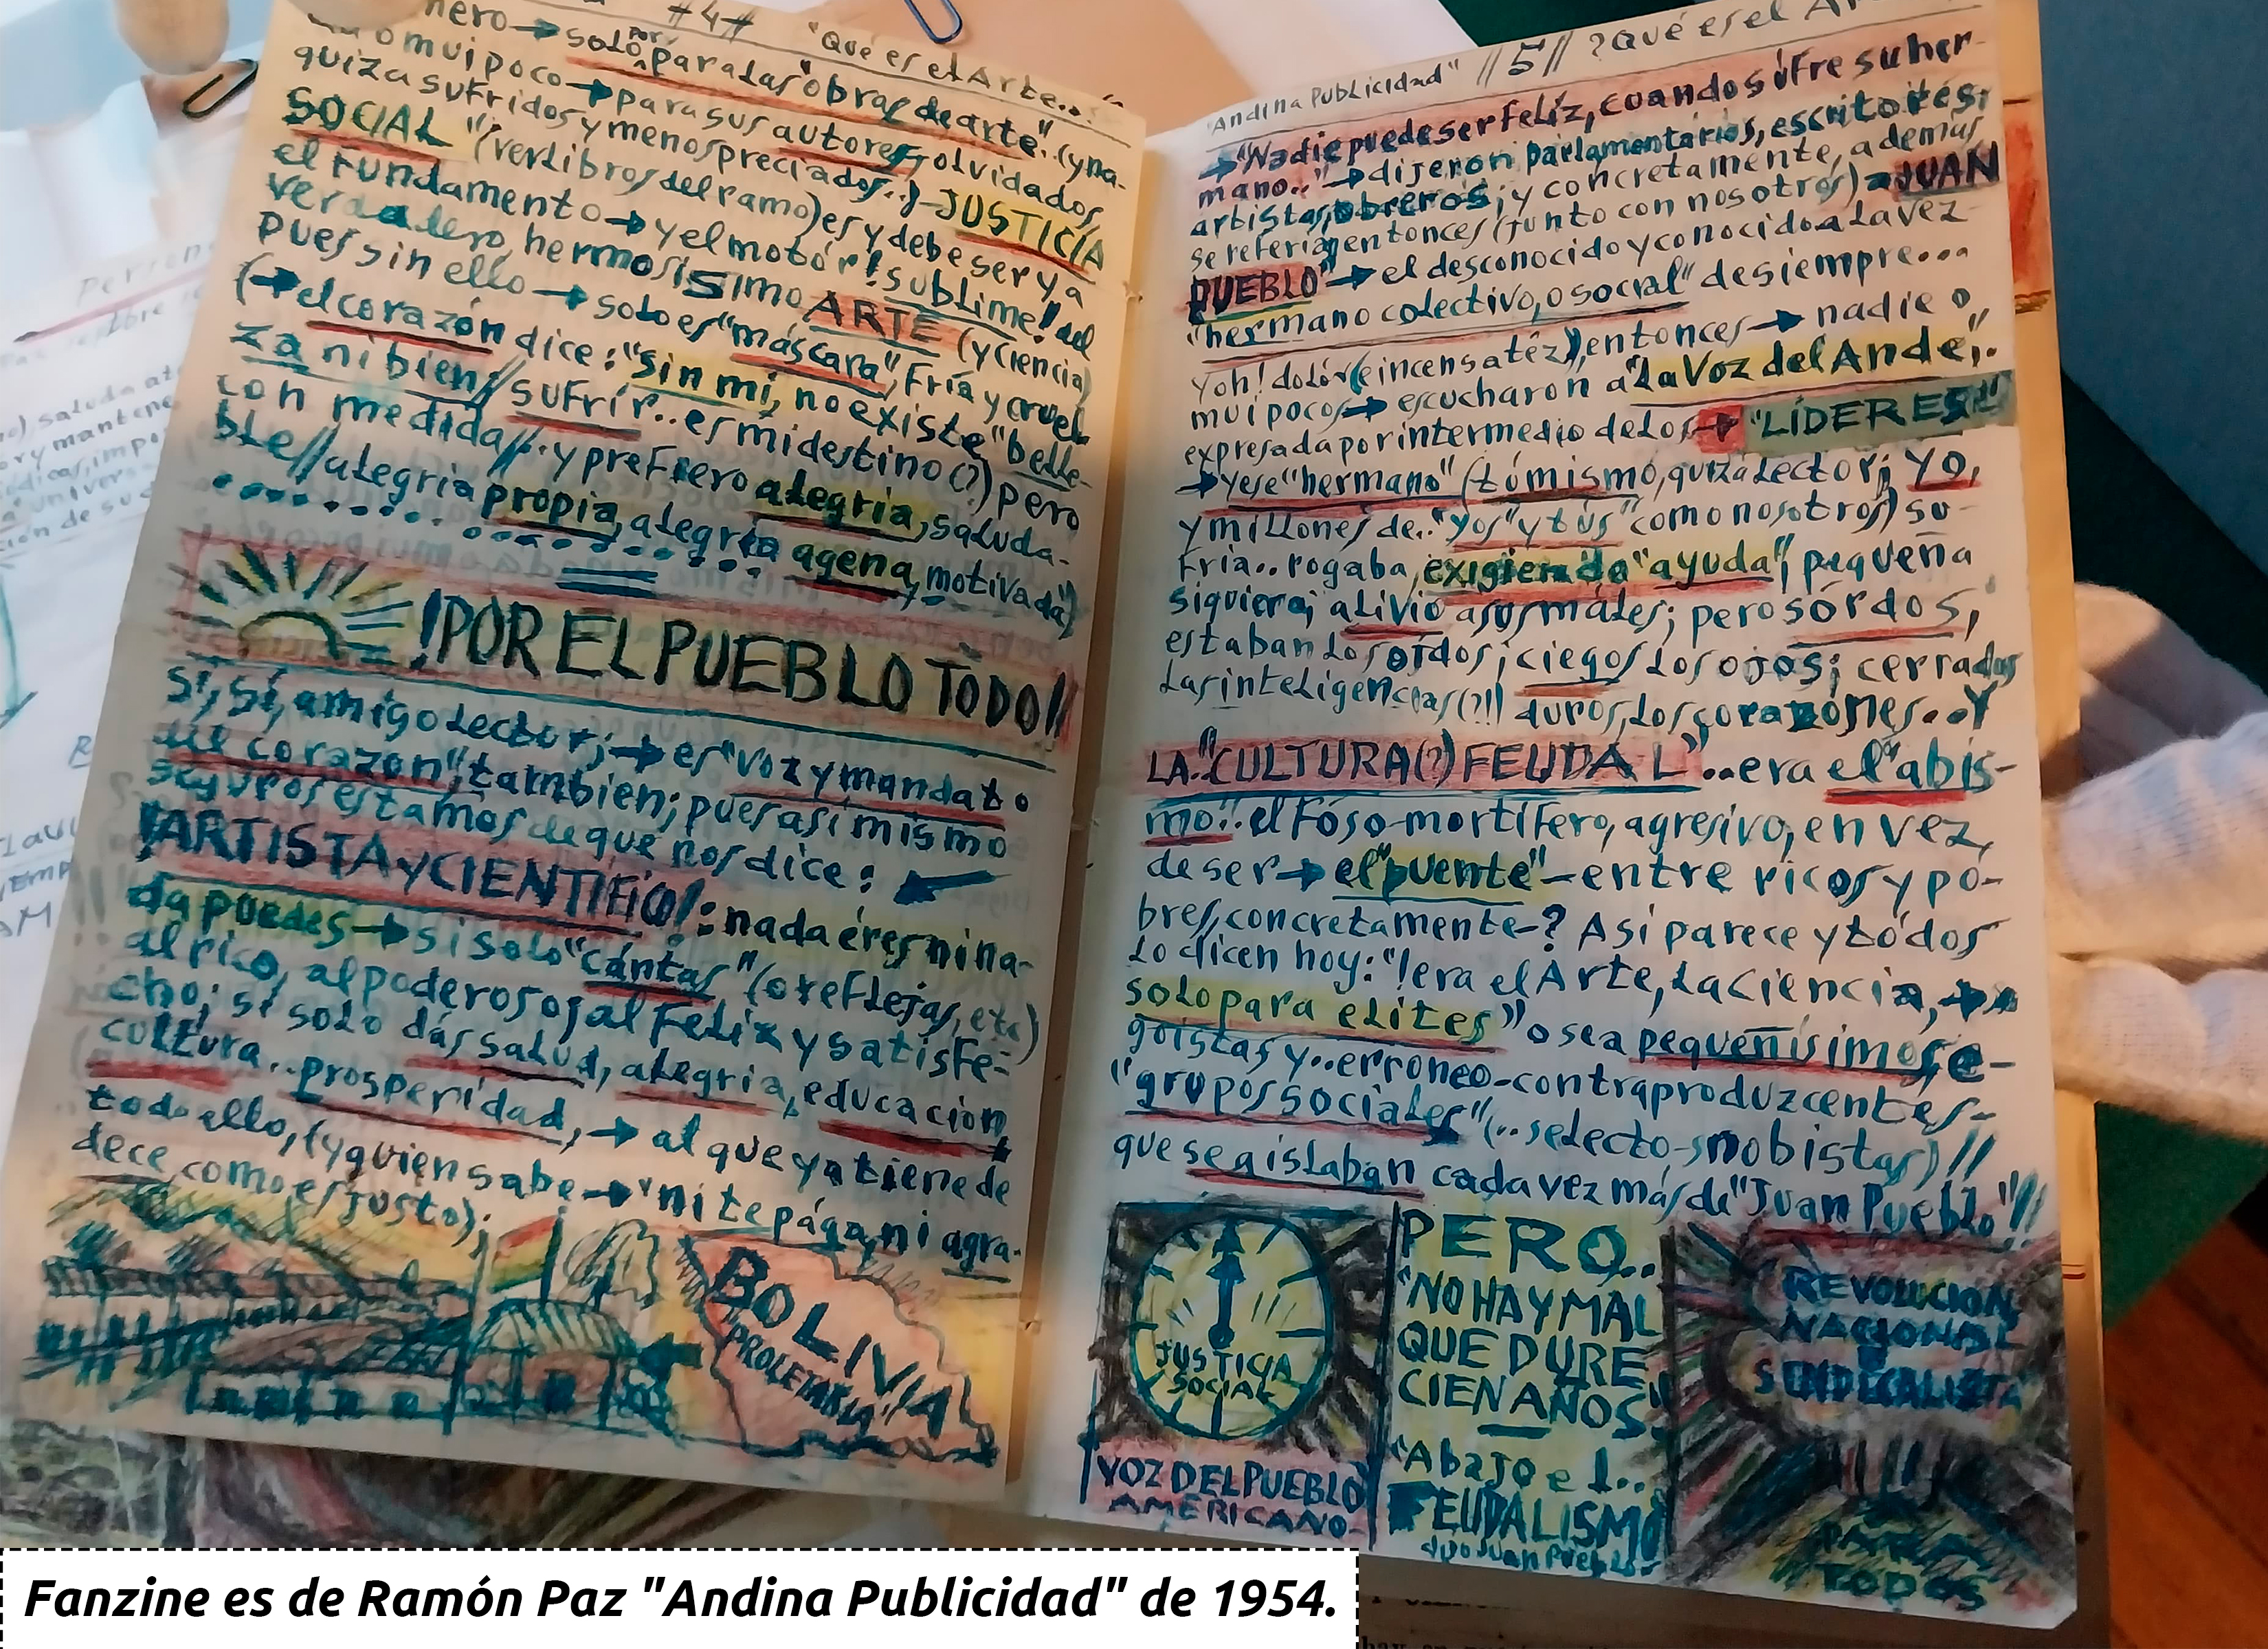 #4# "Qué es el Arte..
nero→solo por para las "obras de arte". (y na-
mui poco→para sus autores, olvidados,
quiza sufridos y menospreciados..)-JUSTICIA
SOCIAL" (ver libros del ramo) es y debe ser ya
el fundamento→y el motór! sublime! del
verdadero, hermosisimo ARTE (y ciencia)
pues sin ello→solo es "máscara", fría y cruel
(→el corazón dice: "sin mi, no existe "belle-
za ni bien// sufrir.. es mi destino(?) pero
con medida//.. y prefiero alegria, saluda-
ble// alegria propia, alegria agena, motivada)
!POR EL PUEBLO TODO!!
Sí, sí, amigo lector;→es "voz y mandato
del corazon", tambien; pues asi mismo
seguros estamos de que nos dice:
!ARTISTA y CIENTIFICO!: nada éres ni na-
da puedes→si solo "cántas" (o reflejas, etc)
al rico, al poderoso, al feliz y satisfe-
cho; si solo dás salud, alegria, educación,
cultura.. prosperidad,→al que ya tiene de
todo ello, (y quien sabe→"ni te pága, ni agra-
dece, como es justo);
BOLIVIA
"PROLETARIA"
"Andina Publicidad" //5// ?Qué es el
→"Nadie puede ser feliz, cuando sufre su her-
mano.."→dijeron parlamentarios, escritores;
artistas, obreros; y concretamente, además
se referian entonces (junto con nosotros) a JUAN
PUEBLO"→el desconocido y conocido a la vez
"hermano colectivo, o social" de siempre...
Y oh! dolór (e incensatêz), entonces→nadie o,
mui pocos→escucharon a "La Voz del Ande",..
expresada por intermedio de los→"LÍDERES"
→y ese "hermano" (tú mismo, quizá lector; yo,
y millones de.. "yos" y tús" como nosotros) su-
fria.. rogaba, exigiendo "ayuda", pequeña
siquiera; alivio a sus máles; pero sórdos,
estaban los oídos; ciegos los ojos; cerradas
las inteligencias(?!) duros, los corazónes...Y
LA.."CULTURA(?) FEUDAL"..era el "abis-
mo".. el fóso-mortífero, agresivo, en vez,
de ser→el "puente"-entre ricos y po-
bres, concretamente-? Asi parece y tódos
lo dicen hoy: "!era el Arte, la Ciencia,→
solo para elites" o sea pequeñísimos, e-
goistas y.. erroneo-contraproduzcentes-
"grupos sociales" (..selecto-snobistas)!!
que se aislaban cada vez más de "Juan Pueblo"!!
JUSTICIA
SOCIAL
VOZ DEL PUEBLO
AMERICANO-
PERO..
"NO HAY MAL
QUE DURE
CIEN AÑOS"
"Abajo el..
FEUDALISMO
dijo Juan Pueblo-
REVOLUCION
NACIONAL
SINDICALISTA
PARA
TODOS
Fanzine es de Ramón Paz "Andina Publicidad" de 1954.